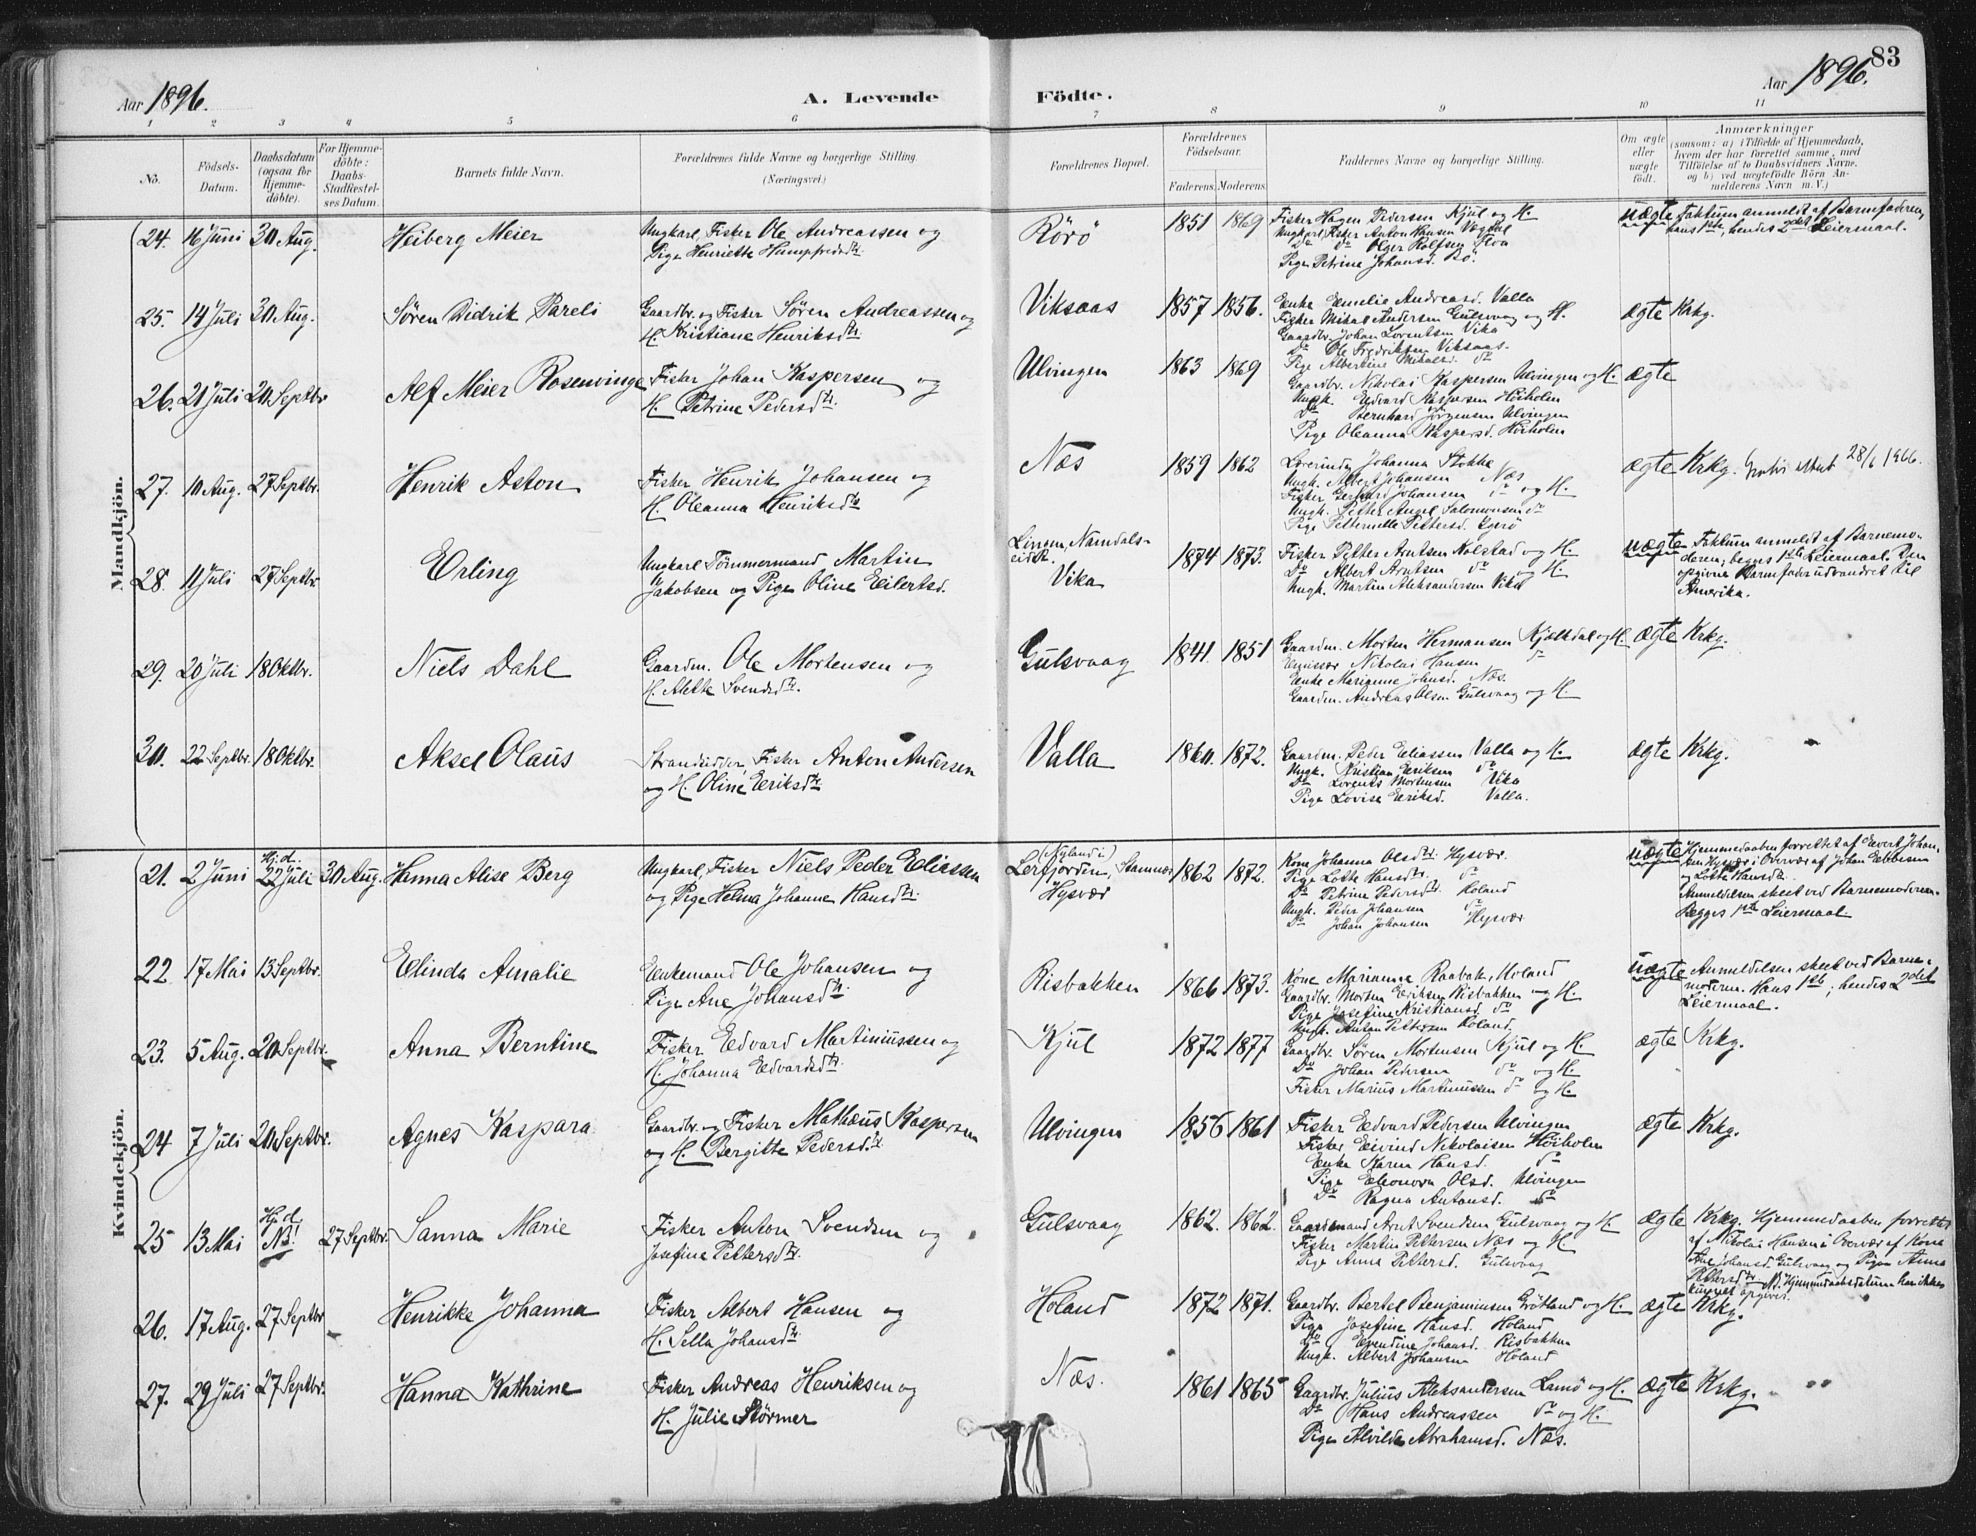 Aar 1896.
A. Levende
Födte.
Aar 1896.
83
1 2 3 4 5 6 7 8 9 10 11
No.
Födsels-Datum.
Daabsdatum (ogsaa for Hjemme-döbte).
For Hjemme-döbte: Daabs-Stadfæstel-ses Datum.
Barnets fulde Navn.
Forældrenes fulde Navne og borgerlige Stilling.
(Næringsvei.)
Forældrenes Bopæl.
Forældrenes Födselsaar.
Faderens. Moderens.
Faddernes Navne og borgerlige Stilling.
Om ægte eller uægte födt.
Anmærkninger
(saasom: a) i Tilfælde af Hjemmedaab, hvem der har forrettet samme, med Tilföielse af to Daabsvidners Navne, og b) ved uægtefödte Börn An-melderens Navn m. V.)
Mandkjön.
24. 16 Juni 30 Aug. Heiberg Meier
Ungkarl, Fisker Ole Andreassen og
Pige Henriette Humpfredsdtr.
Rörö 1851 1869
Fisker Hagen Pedersen Kjul og H.
Ungkarl Fisker Anton Hansen
Do do Olger Rolfsen Floa
Pige Petrine Johansd. Bö.
uægte Faktum anmeldt af Barnefaderen,
hans 1ste, hendes 2det Leiermaal.
25. 14 Juli 30 Aug. Sören Didrik Pareli
Gaardbr. og Fisker Sören Andreassen og
H. Kristiane Henriksdtr.
Viksaas 1857 1856.
Enke Emelie Andreasd. Valla
Fisker Mikal Andersen Gulsvaag og H.
Gaardbr. Johan Lorentsen Vika
Do Ole Fredriksen Viksaas.
Pige Albertine Mikalsd. do
ægte Krkg.
26. 21 Juli 20 Septbr. Alf Meier Rosenvinge
Fisker Johan Kaspersen og
H. Petrine Pedersdtr.
Ulvingen 1863 1869
Gaardbr. Nikolai Kaspersen Ulvingen og H.
Ungk. Edvard Kaspersen Höiholm
Do Bernhard Jörgensen Ulvingen
Pige Oleanna Kaspersd. Höiholm
ægte
27. 10 Aug. 27 Septbr. Henrik Aston
Fisker Henrik Johansen og
H. Oleanna Henriksdtr
Næs 1859 1862
Lærerinde Johanna Stokke
Ungk. Albert Johansen Næs
Fisker Gerhard Johansen do og H.
Ungk. Petter Angel Salomonsen do
Pige Petternelle Pettersd. Igerö
ægte Krkg. 28/6 1966.
28. 11 Juli 27 Septbr. Erling
Ungkarl Tömmermand Martin
Jakobsen og Pige Oline Eilertsd.
Namdals-
eidet.
Vika 1874 1873.
Fisker Petter Arntsen Nolstad og H.
Do Albert Arntsen do og H.
Ungk. Martin Aleksandersen Vika
uægte Faktum anmeldt af Barnemo-
deren; begges 1ste Leiermaal. Den
opgivne Barnefader udvandret til
Amerika.
29. 20 Juli 18 Oktbr. Niels Dahl
Gaardm. Ole Mortensen og
H. Alette Svendsdtr.
Gulsvaag 1841. 1851
Gaardm. Morten Hermansen Kjælkdal og H.
Nikolai Hansen do
Enke Marianne Johnsd. Næs.
Gaardm. Andreas Olsen Gulsvaag og H.
ægte Krkg.
30. 22 Septbr. 18 Oktbr. Aksel Olaus
Strandsidder Fisker Anton Andersen
og H. Oline Eriksdtr.
Valla 1860. 1872.
Gaardm. Peder Eliassen Valla og H.
Ungk. Kristian Eriksen do
Do Lorents Mortensen Vika
Pige Lovise Eriksd. Valla.
ægte Krkg.
Kvindekjön.
21. 2 Juni Hj.d. 22 Juli 30 Aug. Hanna Alise Berg
Ungkarl, Fisker Niels Peder Eliassen
og Pige Helma Johanne Hansdtr.
(Nyland i)
Leirfjorden, Stamnes
Hysvær 1862 1872.
Kone Johanna Olsdtr. Hysvær.
Pige Lotte Hansdtr. do
Do Petrine Pedersdtr. Holand
Ungk. Peder Johansen do
Do Johan Johansen Hysvær
uægte Hjemmedaaben forrettet af Evert Johan-
sen Hysvær i Overvær af Johan Ebbesen
og Lotte Hansdtr.
Anmeldelsen skeet ved Barnemoderen.
Begges 1ste Leiermaal.
22 17 Mai 13 Septbr. Elinda Amalie
Enkemand Ole Johansen og
Pige Ane Johansdtr.
Risbakken 1866 1873.
Kone Marianne Raabak, Holand
Gaardbr. Morten Eriksen Risbakken og H.
Pige Josefine Kristiansd. do
Ungk. Anton Pettersen Holand
uægte Anmeldelsen skeet ved Barne-
moderen. Hans 1ste, hendes 2det
Leiermaal.
23. 5 Aug. 20 Septbr. Anna Berntine
Fisker Edvard Martinussen og
H. Johanna Edvardsdtr.
Kjul 1872 1877
Gaardbr. Sören Mortensen Kjul og H.
Do Johan Pedersen do og H.
Fisker Marius Martinussen do og H.
ægte Krkg.
24 7 Juli 20 Septbr. Agnes Kaspara
Gaardbr. og Fisker Mathæus Kaspersen
og H. Bergitte Pedersdtr.
Ulvingen 1856 1861
Fisker Edvard Pedersen Ulvingen
Fisker Eivind Nikolaisen Höiholm
Enke Karen Hansd. do
Pige Eleonora Olsd. Ulvingen
Do Ragna Antonsd. do
ægte Krkg.
25 13 Mai Hj.d. NB! 27 Septbr. Sanna Marie
Fisker Anton Svendsen og
Josefine Pettersdtr.
Gulsvaag 1862. 1862.
Gaardmand Arnt Svendsen Gulsvaag og H.
Fisker Martin Pettersen Næs og H.
Pige Anna Pettersd. Gulsvaag
ægte Krkg. Hjemmedaaben forrettet
af Nikolai Hansen i Overvær af Kone
Ane Johansd. Gulsvaag og Pigen Anna
Pettersdtr. NB. Hjemmedaabsdatum har ikke
kunnet opgives.
26. 17 Aug. 27 Septbr Henrikke Johanna
Fisker Albert Hansen og
H. Sella Johansdtr.
Holand 1872 1871.
Gaardbr. Bertel Benjaminsen Grötland og H.
Pige Josefine Hansd. Holand
Do Evendine Johansd. Risbakken
Ungk. Albert Johansen Holand
ægte Krkg.
27. 29 Juli 27 Septbr. Hanna Kathrine
Fisker Andreas Henriksen og
H. Julie Störmer
Næs. 1861 1865
Gaardbr. Julius Aleksandersen Lamö og H.
Do Hans Andreassen do og H.
Pige Alvilde Abrahamsd. Næs.
ægte Krkg.